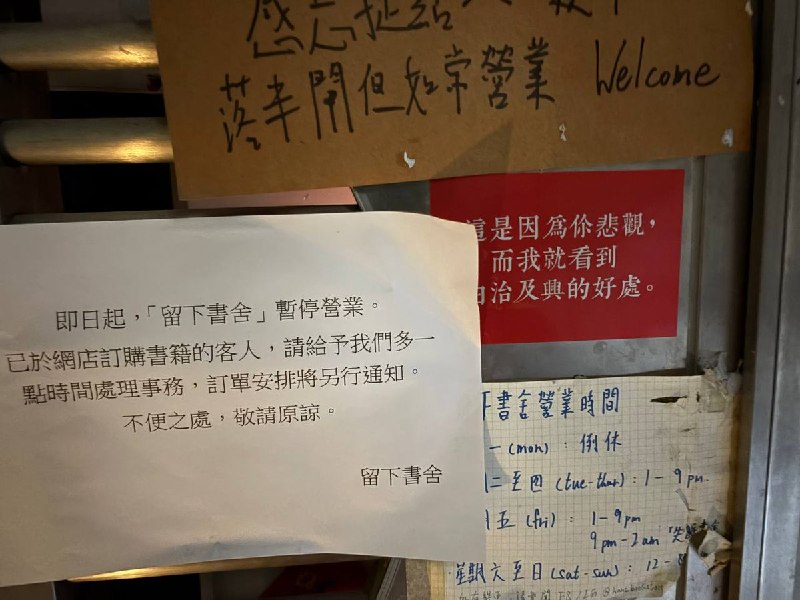 落半閘但如常營業 Welcome
這是因為你悲觀，
而我就看到
由治及興的好處。
即日起，「留下書舍」暫停營業。
已於網店訂購書籍的客人，請給予我們多一
點時間處理事務，訂單安排將另行通知。
不便之處，敬請原諒。
留下書舍
下書舍營業時間
一 (mon) : 例休
二至四 (tue-thur) : 1 - 9 pm.
五 (fri) : 1 - 9pm
9pm - 2am
星期六至日 (sat-sun) : 12 -